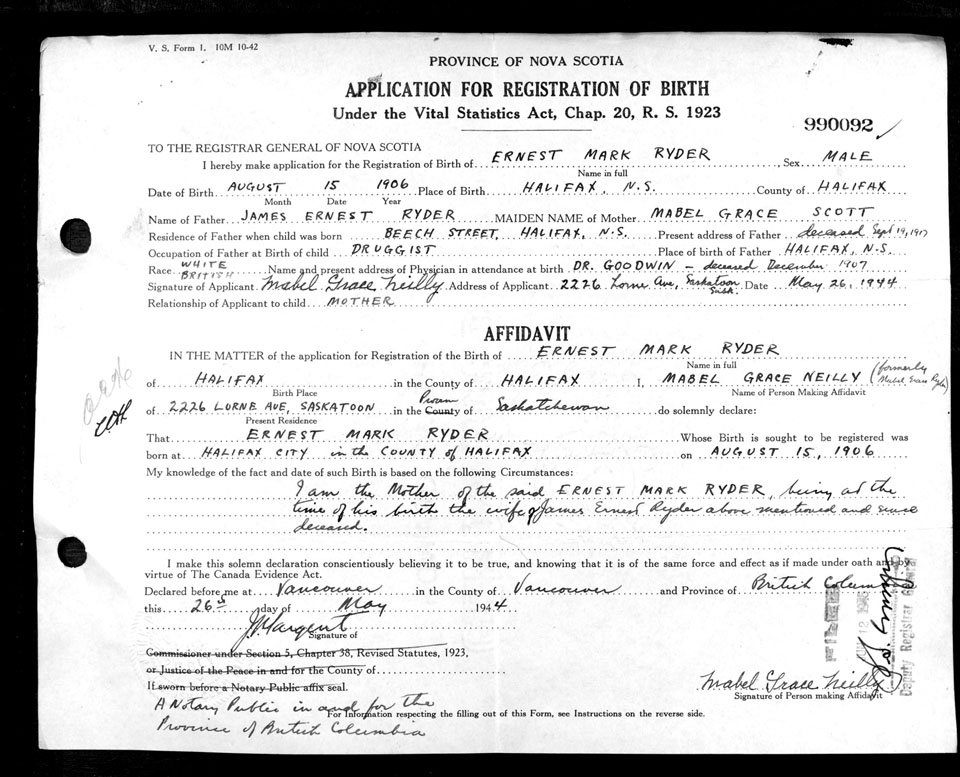 V. S. Form 1. 10M 10-42
PROVINCE OF NOVA SCOTIA
APPLICATION FOR REGISTRATION OF BIRTH
Under the Vital Statistics Act, Chap. 20, R. S. 1923
990092
TO THE REGISTRAR GENERAL OF NOVA SCOTIA
I hereby make application for the Registration of Birth of ERNEST MARK RYDER, Sex MALE
Name in full
Date of Birth AUGUST 15 1906 Place of Birth HALIFAX, N.S. County of HALIFAX
Month Date Year
Name of Father JAMES ERNEST RYDER MAIDEN NAME of Mother MABEL GRACE SCOTT
Residence of Father when child was born BEECH STREET, HALIFAX, N.S. Present address of Father deceased Sept 19, 1917
Occupation of Father at Birth of child DRUGGIST Place of birth of Father HALIFAX, N.S.
Race WHITE BRITISH Name and present address of Physician in attendance at birth DR. GOODWIN – deceased December 1907
Signature of Applicant Mabel Grace Neilly Address of Applicant 2226 Lorne Ave, Saskatoon Sask. Date May 26, 1944
Relationship of Applicant to child MOTHER
AFFIDAVIT
IN THE MATTER of the application for Registration of the Birth of ERNEST MARK RYDER
Name in full
of HALIFAX in the County of HALIFAX I, MABEL GRACE NEILLY (formerly Mabel Grace Ryder)
Birth Place Name of Person Making Affidavit
of 2226 LORNE AVE, SASKATOON in the County of Saskatchewan do solemnly declare:
Present Residence
That ERNEST MARK RYDER Whose Birth is sought to be registered was
born at HALIFAX CITY in the COUNTY of HALIFAX on AUGUST 15, 1906
My knowledge of the fact and date of such Birth is based on the following Circumstances:
I am the Mother of the said ERNEST MARK RYDER, being at the
time of his birth the wife of James Ernest Ryder above mentioned and since
deceased.
I make this solemn declaration conscientiously believing it to be true, and knowing that it is of the same force and effect as if made under oath and by
virtue of The Canada Evidence Act.
Declared before me at Vancouver in the County of Vancouver and Province of British Columbia
this 26 day of May 1944.
Signature of
Commissioner under Section 5, Chapter 38, Revised Statutes, 1923,
or Justice of the Peace in and for the County of
If sworn before a Notary Public affix seal.
Mabel Grace Neilly
Signature of Person making Affidavit
A Notary Public in and for the
For Information respecting the filling out of this Form, see Instructions on the reverse side.
Province of British Columbia
Deputy Registrar General